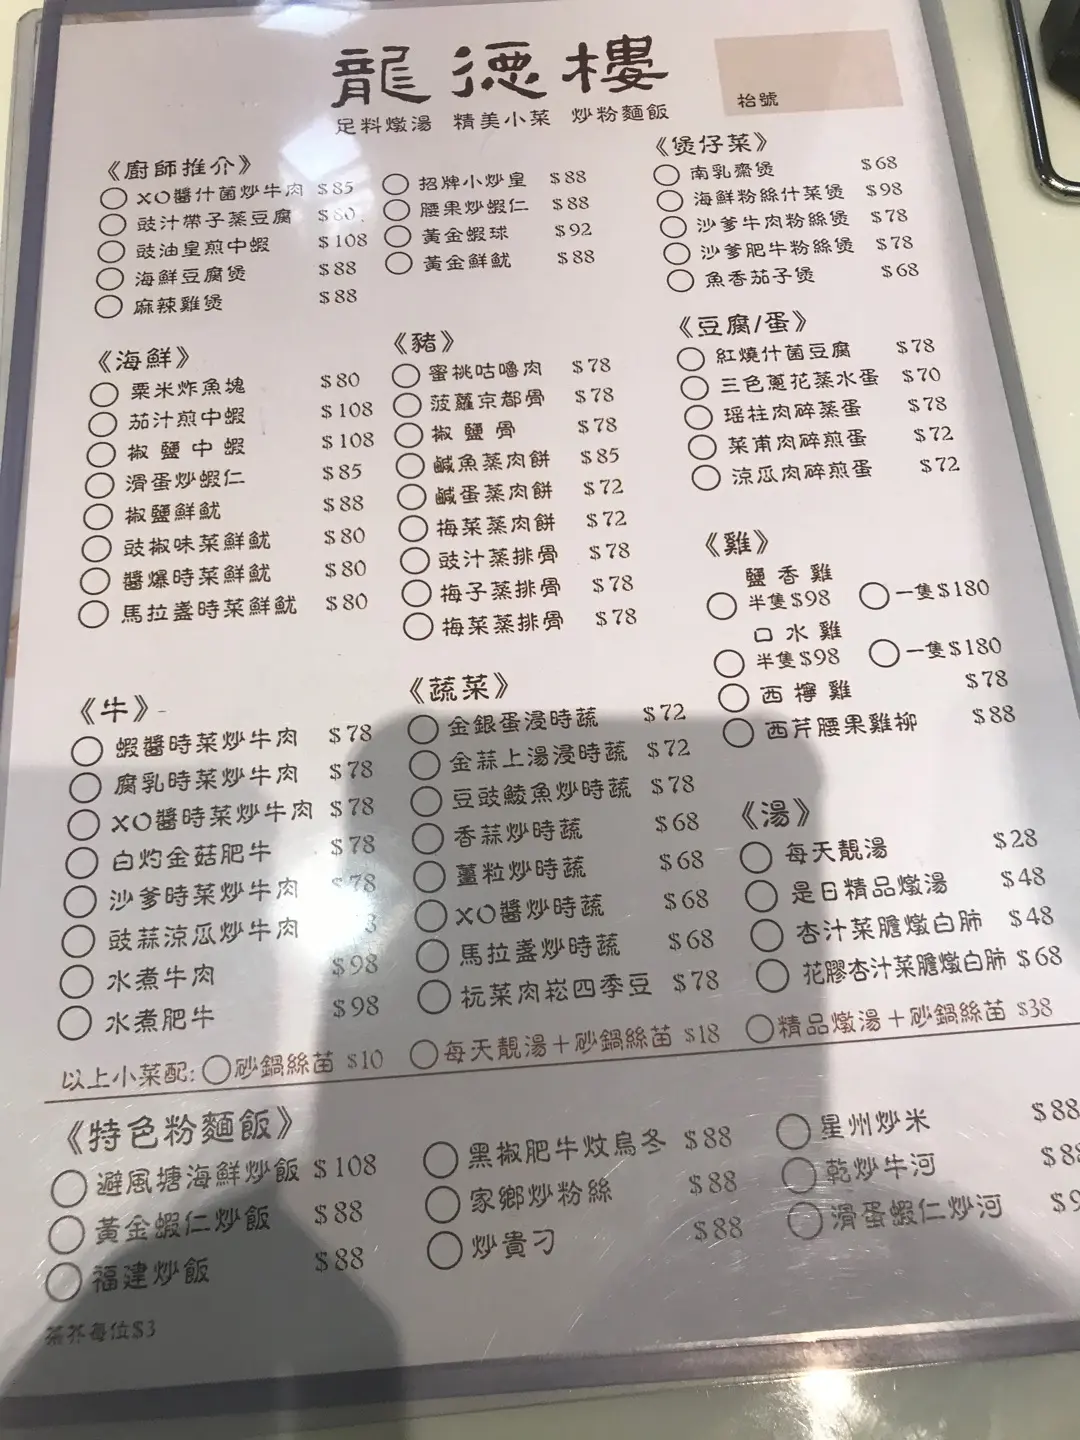 龍德樓
足料燉湯 精美小菜 炒粉麵飯
枱號
《廚師推介》
XO醬什菌炒牛肉 $85
豉汁帶子蒸豆腐 $80
豉油皇煎中蝦 $108
海鮮豆腐煲 $88
麻辣雞煲 $88
招牌小炒皇 $88
腰果炒蝦仁 $88
黃金蝦球 $92
黃金鮮魷 $88
《煲仔菜》
南乳齋煲 $68
海鮮粉絲什菜煲 $98
沙爹牛肉粉絲煲 $78
沙爹肥牛粉絲煲 $78
魚香茄子煲 $68
《海鮮》
粟米炸魚塊 $80
茄汁煎中蝦 $108
椒鹽中蝦 $108
滑蛋炒蝦仁 $85
椒鹽鮮魷 $88
豉椒味菜鮮魷 $80
醬爆時菜鮮魷 $80
馬拉盞時菜鮮魷 $80
《豬》
蜜桃咕嚕肉 $78
菠蘿京都骨 $78
椒鹽骨 $78
鹹魚蒸肉餅 $85
鹹蛋蒸肉餅 $72
梅菜蒸肉餅 $72
豉汁蒸排骨 $78
梅子蒸排骨 $78
梅菜蒸排骨 $78
《豆腐/蛋》
紅燒什菌豆腐 $78
三色蔥花蒸水蛋 $70
瑤柱肉碎蒸蛋 $78
菜甫肉碎煎蛋 $72
涼瓜肉碎煎蛋 $72
《雞》
鹽香雞
半隻$98 一隻$180
口水雞
半隻$98 一隻$180
西檸雞 $78
西芹腰果雞柳 $88
《牛》
蝦醬時菜炒牛肉 $78
腐乳時菜炒牛肉 $78
XO醬時菜炒牛肉 $78
白灼金菇肥牛 $78
沙爹時菜炒牛肉 $78
豉蒜涼瓜炒牛肉
水煮牛肉 $98
水煮肥牛 $98
《蔬菜》
金銀蛋浸時蔬 $72
金蒜上湯浸時蔬 $72
豆豉鯪魚炒時蔬 $78
香蒜炒時蔬 $68
薑粒炒時蔬 $68
XO醬炒時蔬 $68
馬拉盞炒時蔬 $68
杬菜肉崧四季豆 $78
《湯》
每天靚湯 $28
是日精品燉湯 $48
杏汁菜膽燉白肺 $48
花膠杏汁菜膽燉白肺 $68
以上小菜配: 砂鍋絲苗 $10 每天靚湯+砂鍋絲苗 $18 精品燉湯+砂鍋絲苗 $38
《特色粉麵飯》
避風塘海鮮炒飯 $108
黃金蝦仁炒飯 $88
福建炒飯 $88
黑椒肥牛炆烏冬 $88
家鄉炒粉絲 $88
炒貴刁 $88
星州炒米 $88
乾炒牛河 $88
滑蛋蝦仁炒河
茶芥每位$3